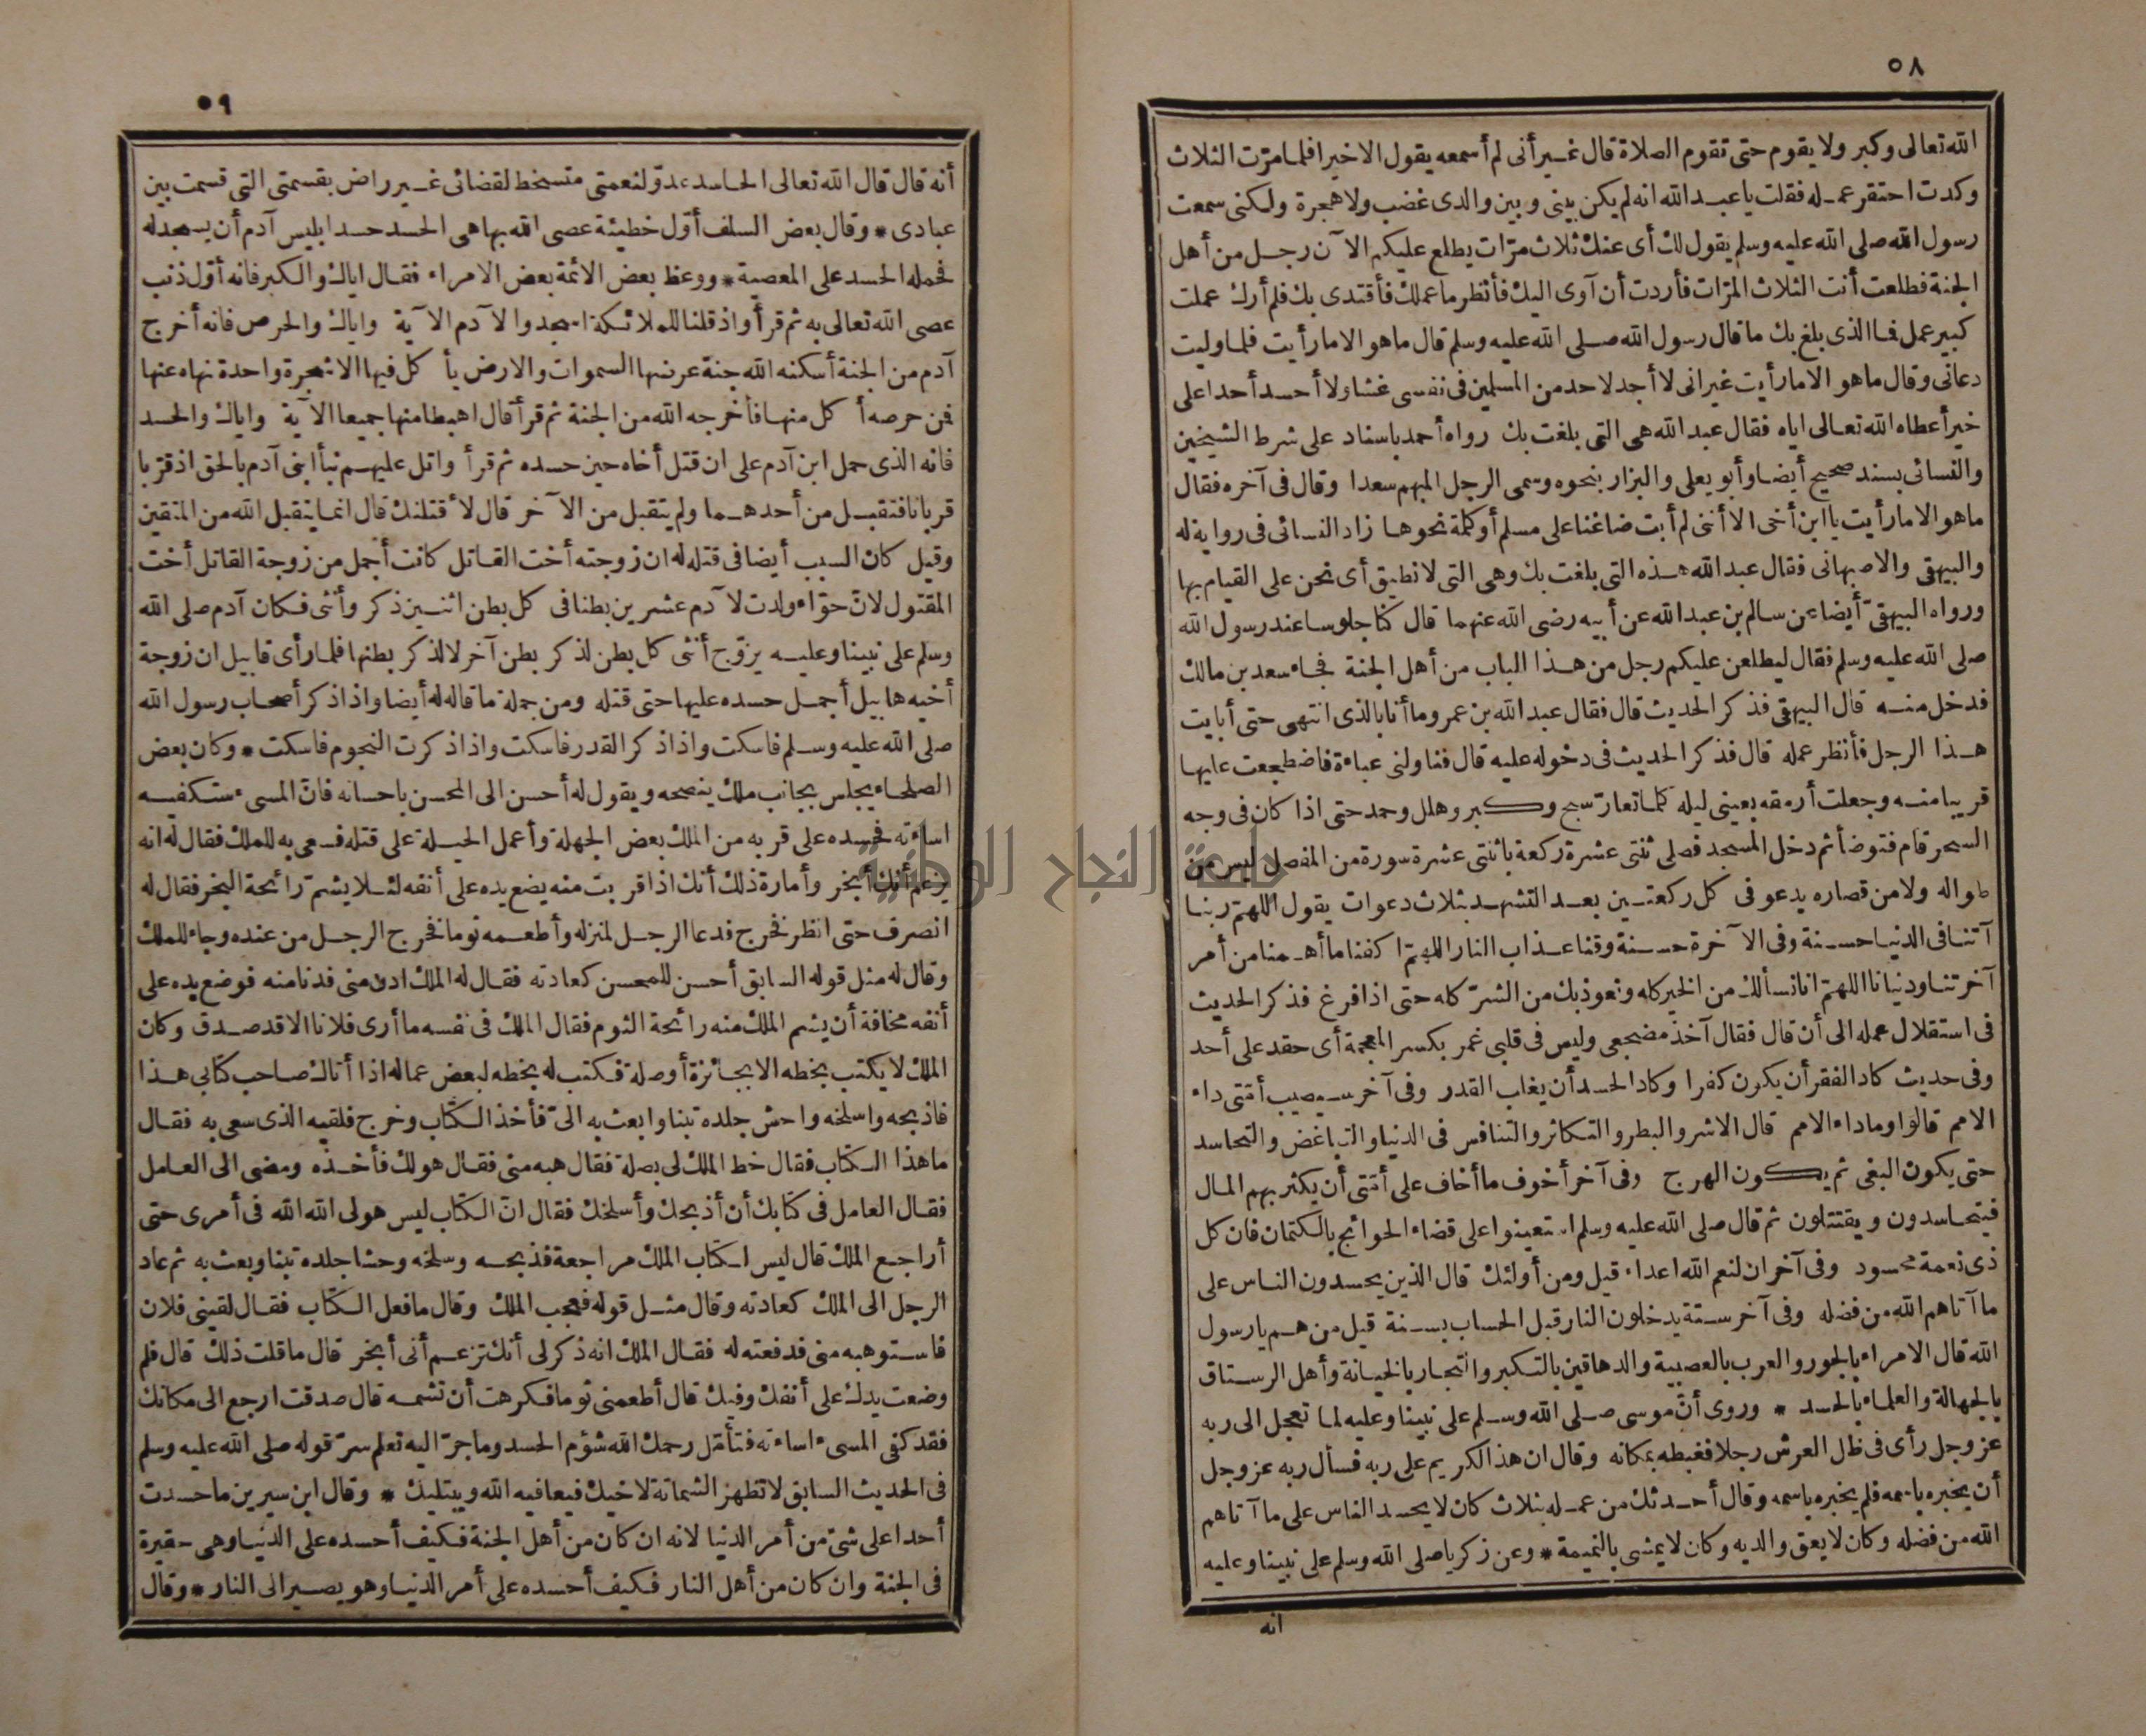 ٥٨
الله تعالى وكبر ولا يقوم حتى تقوم الصلاة قال غير أنى لم أسمعه يقول الاخيرا فلما مرّت الثلاث
وكدت احتقر عمله فقلت يا عبد الله انه لم يكن بينى وبين والدى غضب ولا هجرة ولكنى سمعت
رسول الله صلى الله عليه وسلم يقول لك أى عنك ثلاث مرّات يطلع عليكم الآن رجل من أهل
الجنة فطلعت أنت الثلاث المرّات فأردت أن آوى اليك فأنظر ما عملك فأقتدى بك فلم أرك عملت
كبير عمل فما الذى بلغ بك ما قال رسول الله صلى الله عليه وسلم قال ما هو الا ما رأيت فلما وليت
دعانى وقال ما هو الا ما رأيت غير انى لا أجد لاحد من المسلمين فى نفسى غشا ولا أحسد أحدا على
خير أعطاه الله تعالى اياه فقال عبد الله هى التى بلغت بك رواه أحمد باسناد على شرط الشيخين
والنسائى بسند صحيح أيضا وأبو يعلى والبزار بنحوه وسمى الرجل المبهم سعدا وقال فى آخره فقال
ما هو الا ما رأيت يا ابن أخى الا أننى لم أبت ضاغنا على مسلم أو كلمة نحوها زاد النسائى فى رواية له
والبيهقى والاصبهانى فقال عبد الله هذه التى بلغت بك وهى التى لا نطيق أى نحن على القيام بها
ورواه البيهقىّ أيضا عن سالم بن عبد الله عن أبيه رضى الله عنهما قال كنا جلوسا عند رسول الله
صلى الله عليه وسلم فقال ليطلعن عليكم رجل من هذا الباب من أهل الجنة فجاء سعد بن مالك
فدخل منه قال البيهقى فذكر الحديث قال فقال عبد الله بن عمر وما أنا بالذى انتهى حتى أبايت
هذا الرجل فأنظر عمله قال فذكر الحديث فى دخوله عليه قال فناولنى عباءة فاضطجعت عليها
قريبا منه وجعلت أرمقه بعينى ليله كلما تعارّ سبح وكبر وهلل وحمد حتى اذا كان فى وجه
السحر قام فتوضأ ثم دخل المسجد فصلى ثنتى عشرة ركعة باثنتى عشرة سورة من المفصل ليس من
طواله ولا من قصاره يدعو فى كل ركعتين بعد التشهد بثلاث دعوات يقول اللهمّ ربنا
آتنا فى الدنيا حسنة وفى الآخرة حسنة وقنا عذاب النار اللهمّ اكفنا ما أهمنا من أمر
آخرتنا ودنيانا اللهمّ انا نسألك من الخير كله ونعوذ بك من الشرّ كله حتى اذا فرغ فذكر الحديث
فى استقلال عمله الى أن قال فقال آخذ مضجعى وليس فى قلبى غمر بكسر المعجمة أى حقد على أحد
وفى حديث كاد الفقر أن يكون كفرا وكاد الحسد أن يغلب القدر وفى آخر سيصيب أمّتى داء
الامم قالوا وما داء الامم قال الاشر والبطر والتكاثر والتنافس فى الدنيا والتباغض والتحاسد
حتى يكون البغى ثم يكون الهرج وفى آخر أخوف ما أخاف على أمّتى أن يكثر بهم المال
فيتحاسدون ويقتتلون ثم قال صلى الله عليه وسلم استعينوا على قضاء الحوائج بالكتمان فان كل
ذى نعمة محسود وفى آخر ان لنعم الله اعداء قيل ومن أولئك قال الذين يحسدون الناس على
ما آتاهم الله من فضله وفى آخر ستة يدخلون النار قبل الحساب بسنة قيل من هم يا رسول
الله قال الامراء بالجور والعرب بالعصبية والدهاقين بالتكبر والتجار بالخيانة وأهل الرستاق
بالجهالة والعلماء بالحسد * وروى أنّ موسى صلى الله وسلم على نبينا وعليه لما تعجل الى ربه
عز وجل رأى فى ظل العرش رجلا فغبطه بمكانه وقال ان هذا الكريم على ربه فسأل ربه عز وجل
أن يخبره باسمه فلم يخبره باسمه وقال أحدثك من عمله بثلاث كان لا يحسد الناس على ما آتاهم
الله من فضله وكان لا يعق والديه وكان لا يمشى بالنميمة * وعن زكريا صلى الله وسلم على نبينا وعليه
انه
٥٩
أنه قال قال الله تعالى الحاسد عدوّ لنعمتى متسخط لقضائى غير راض بقسمتى التى قسمت بين
عبادى * وقال بعض السلف أوّل خطيئة عصى الله بها هى الحسد حسد ابليس آدم أن يسجد له
فحمله الحسد على المعصية * ووعظ بعض الائمة بعض الامراء فقال اياك والكبر فانه أوّل ذنب
عصى الله تعالى به ثم قرأ واذ قلنا للملائكة اسجدوا لآدم الآية واياك والحرص فانه أخرج
آدم من الجنة أسكنه الله جنة عرضها السموات والارض يأكل فيها الا شجرة واحدة نهاه عنها
فمن حرصه أكل منها فأخرجه الله من الجنة ثم قرأ قال اهبطا منها جميعا الآية واياك والحسد
فانه الذى حمل ابن آدم على ان قتل أخاه حين حسده ثم قرأ واتل عليهم نبأ ابنى آدم بالحق اذ قرّبا
قربانا فتقبل من أحدهما ولم يتقبل من الآخر قال لأقتلنك قال انما يتقبل الله من المتقين
وقيل كان السبب أيضا فى قتله له ان زوجته أخت القاتل كانت أجمل من زوجة القاتل أخت
المقتول لانّ حوّاء ولدت لآدم عشرين بطنا فى كل بطن اثنين ذكر وأنثى فكان آدم صلى الله
وسلم على نبينا وعليه يزوّج أنثى كل بطن لذكر بطن آخر لا لذكر بطنها فلما رأى قابيل ان زوجة
أخيه هابيل أجمل حسده عليها حتى قتله ومن جملة ما قاله له أيضا واذا ذكر أصحاب رسول الله
صلى الله عليه وسلم فاسكت واذا ذكر القدر فاسكت واذا ذكرت النجوم فاسكت * وكان بعض
الصلحاء يجلس بجانب ملك ينصحه ويقول له أحسن الى المحسن باحسانه فانّ المسىء ستكفيه
اساءته فحسده على قربه من الملك بعض الجهلة وأعمل الحيلة على قتله فسعى به للملك فقال له انه
يزعم أنك أبخر وأمارة ذلك أنك اذا قربت منه يضع يده على أنفه لئلا يشمّ رائحة البخر فقال له
انصرف حتى انظر فخرج فدعا الرجل لمنزله وأطعمه ثوما فخرج الرجل من عنده وجاء للملك
وقال له مثل قوله السابق أحسن للمحسن كعادته فقال له الملك ادن منى فدنا منه فوضع يده على
أنفه مخافة أن يشم الملك منه رائحة الثوم فقال الملك فى نفسه ما أرى فلانا الا قد صدق وكان
الملك لا يكتب بخطه الا بجائزة أو صلة فكتب له بخطه لبعض عماله اذا أتاك صاحب كتابى هذا
فاذبحه واسلخه واحش جلده تبنا وابعث به الىّ فأخذ الكتاب وخرج فلقيه الذى سعى به فقال
ما هذا الكتاب فقال خط الملك لى بصلة فقال هبه منى فقال هو لك فأخذه ومضى الى العامل
فقال العامل فى كتابك أن أذبحك وأسلخك فقال انّ الكتاب ليس هو لى الله الله فى أمرى حتى
أراجع الملك قال ليس لكتاب الملك مراجعة فذبحه وسلخه وحشا جلده تبنا وبعث به ثم عاد
الرجل الى الملك كعادته وقال مثل قوله فعجب الملك وقال ما فعل الكتاب فقال لقينى فلان
فاستوهبه منى فدفعته له فقال الملك انه ذكر لى أنك تزعم أنى أبخر قال ما قلت ذلك قال فلم
وضعت يدك على أنفك وفيك قال أطعمنى ثوما فكرهت أن تشمه قال صدقت ارجع الى مكانك
فقد كفى المسىء اساءته فتأمّل رحمك الله شؤم الحسد وما جرّ اليه تعلم سرّ قوله صلى الله عليه وسلم
فى الحديث السابق لا تظهر الشماتة لاخيك فيعافيه الله ويبتليك * وقال ابن سيرين ما حسدت
أحدا على شئ من أمر الدنيا لانه ان كان من أهل الجنة فكيف أحسده على الدنيا وهى حقيرة
فى الجنة وان كان من أهل النار فكيف أحسده على أمر الدنيا وهو يصير الى النار * وقال
جامعة النجاح الوطنية